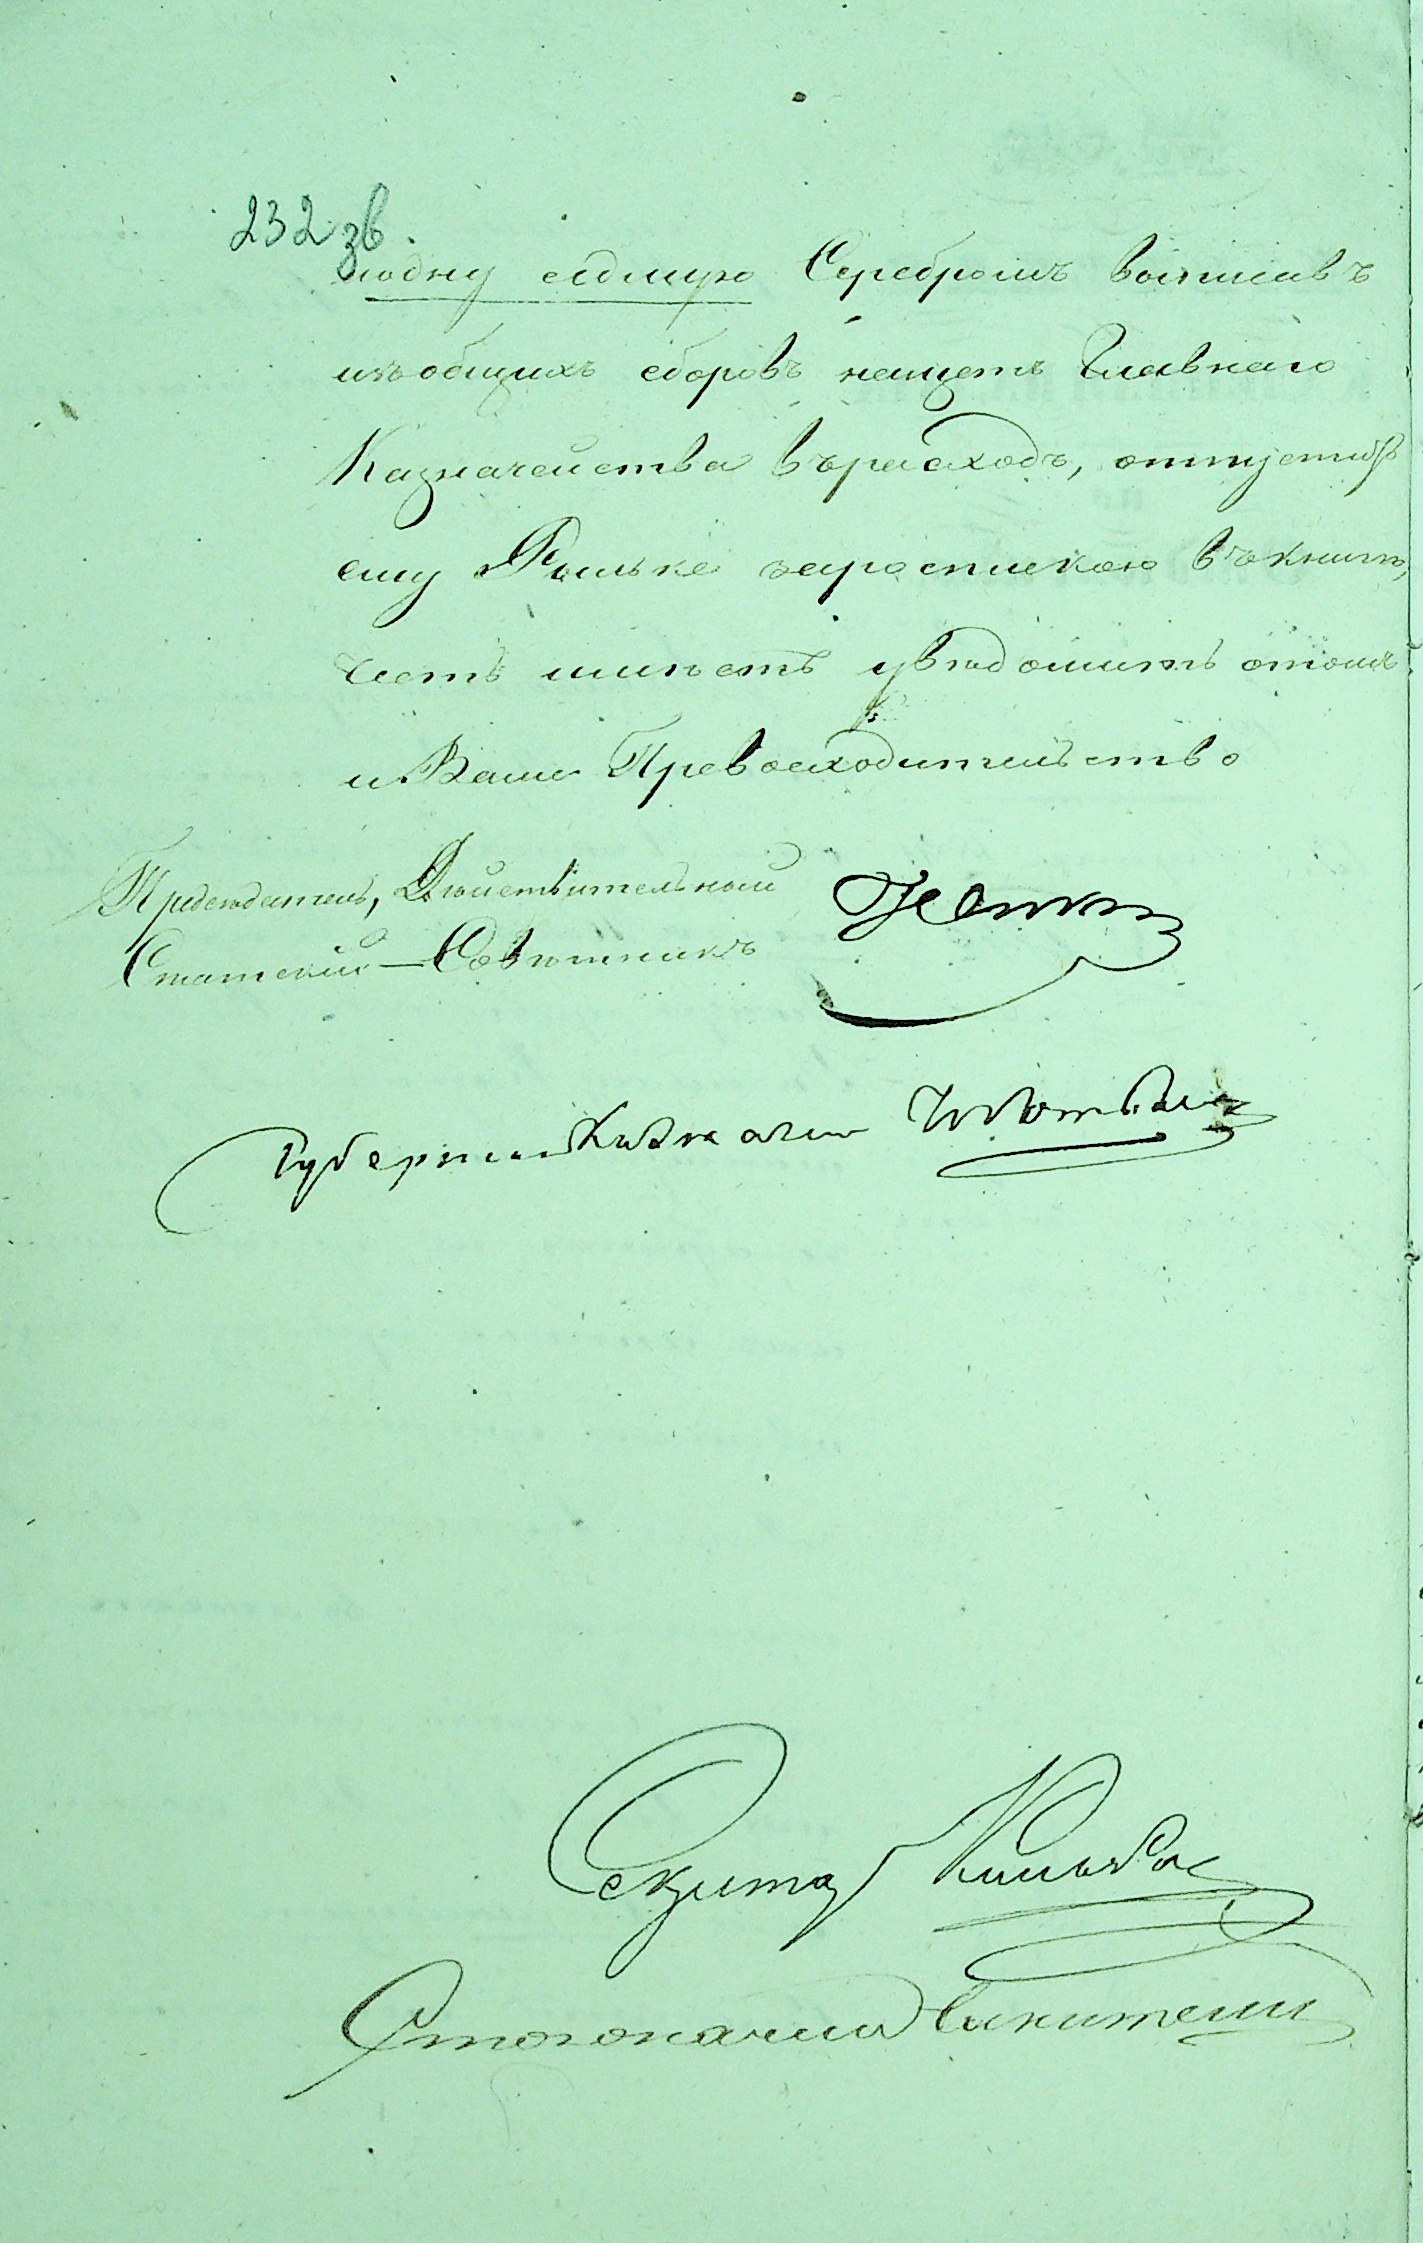 232 зв.
и одну седмую Серебромъ выписавъ
изъ общихъ сборовъ насчетъ Главнаго
Казначейства въ расходъ, отпустить
ему Рильке зароспискою въ книге,
честь имѣетъ увѣдомить отомъ
и Ваше Превосходительство
Председатель, Дѣйствительный
Статскій Совѣтникъ
Губернскій Казначей
Секретарь
Столоначальникъ